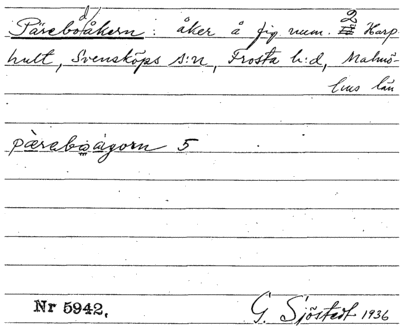 Päreboådkern: åker å fig. num. III2 Harp-
hult, Svensköps s:n, Frosta h:d, Malmö-
hus län
päreboågorn 5
Nr 5942.
G. Sjöstedt 1936